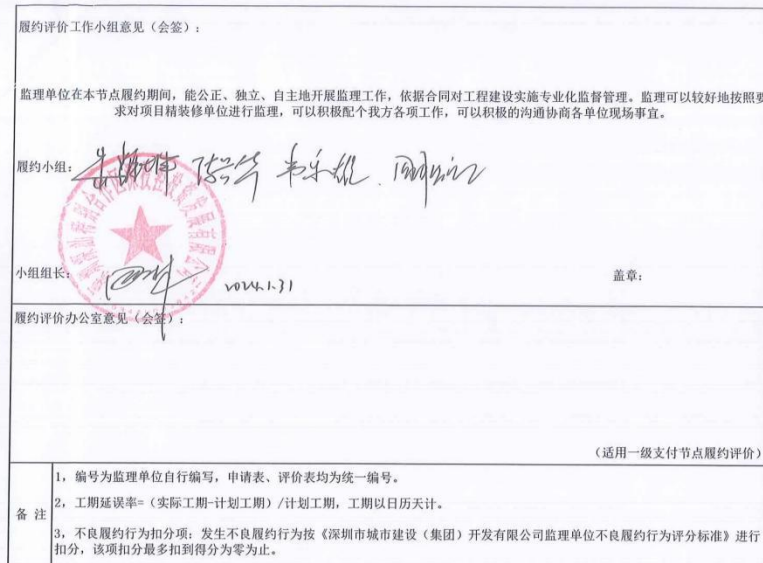 履约评价工作小组意见（会签）：
监理单位在本节点履约期间，能公正、独立、自主地开展监理工作，依据合同对工程建设实施专业化监督管理。监理可以较好地按照要
求对项目精装修单位进行监理，可以积极配个我方各项工作，可以积极的沟通协商各单位现场事宜。
履约小组：
小组组长： 2024.1.31 盖章：
履约评价办公室意见（会签）：
（适用一级支付节点履约评价）
备 注
1，编号为监理单位自行编写，申请表、评价表均为统一编号。
2，工期延误率=（实际工期-计划工期）/计划工期，工期以日历天计。
3，不良履约行为扣分项：发生不良履约行为按《深圳市城市建设（集团）开发有限公司监理单位不良履约行为评分标准》进行
扣分，该项扣分最多扣到得分为零为止。